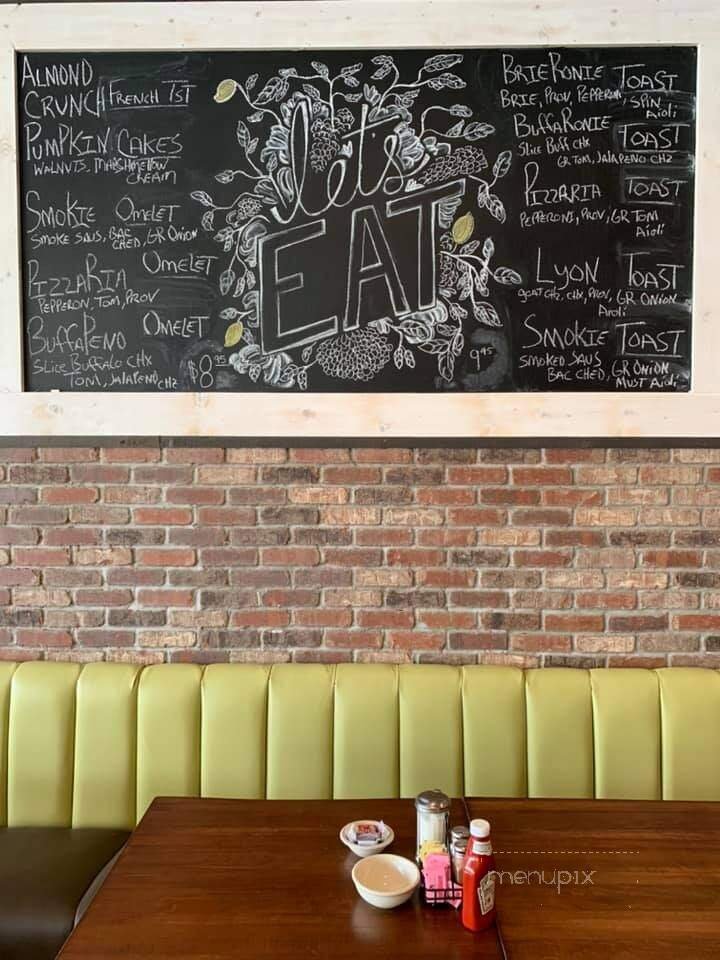 ALMOND
CRUNCH FRENCH TST
PUMPKIN CAKES
WALNUTS, MARSHMELLOW
CREAM
SMOKIE OMELET
SMOKE SAUS, BAC
CHED, GR ONION
PIZZARIA OMELET
PEPPERON, TOM, PROV
BUFFAPENO OMELET
SLICE BUFFALO CHX
TOM, JALAPENO CHZ
$8.95
let's
EAT
9.45
BRIERONIE TOAST
BRIE, PROV, PEPPERONI, SPIN
Aioli
BUFFARONIE TOAST
SLICE BUFF CHX
GR TOM, JALAPENO CHZ
PIZZARIA TOAST
PEPPERONI, PROV, GR TOM
Aioli
LYON TOAST
GOAT CHZ, CHX, PROV, GR ONION
Aioli
SMOKIE TOAST
SMOKED SAUS
BAC CHED, GR ONION
MUST Aioli
menupix